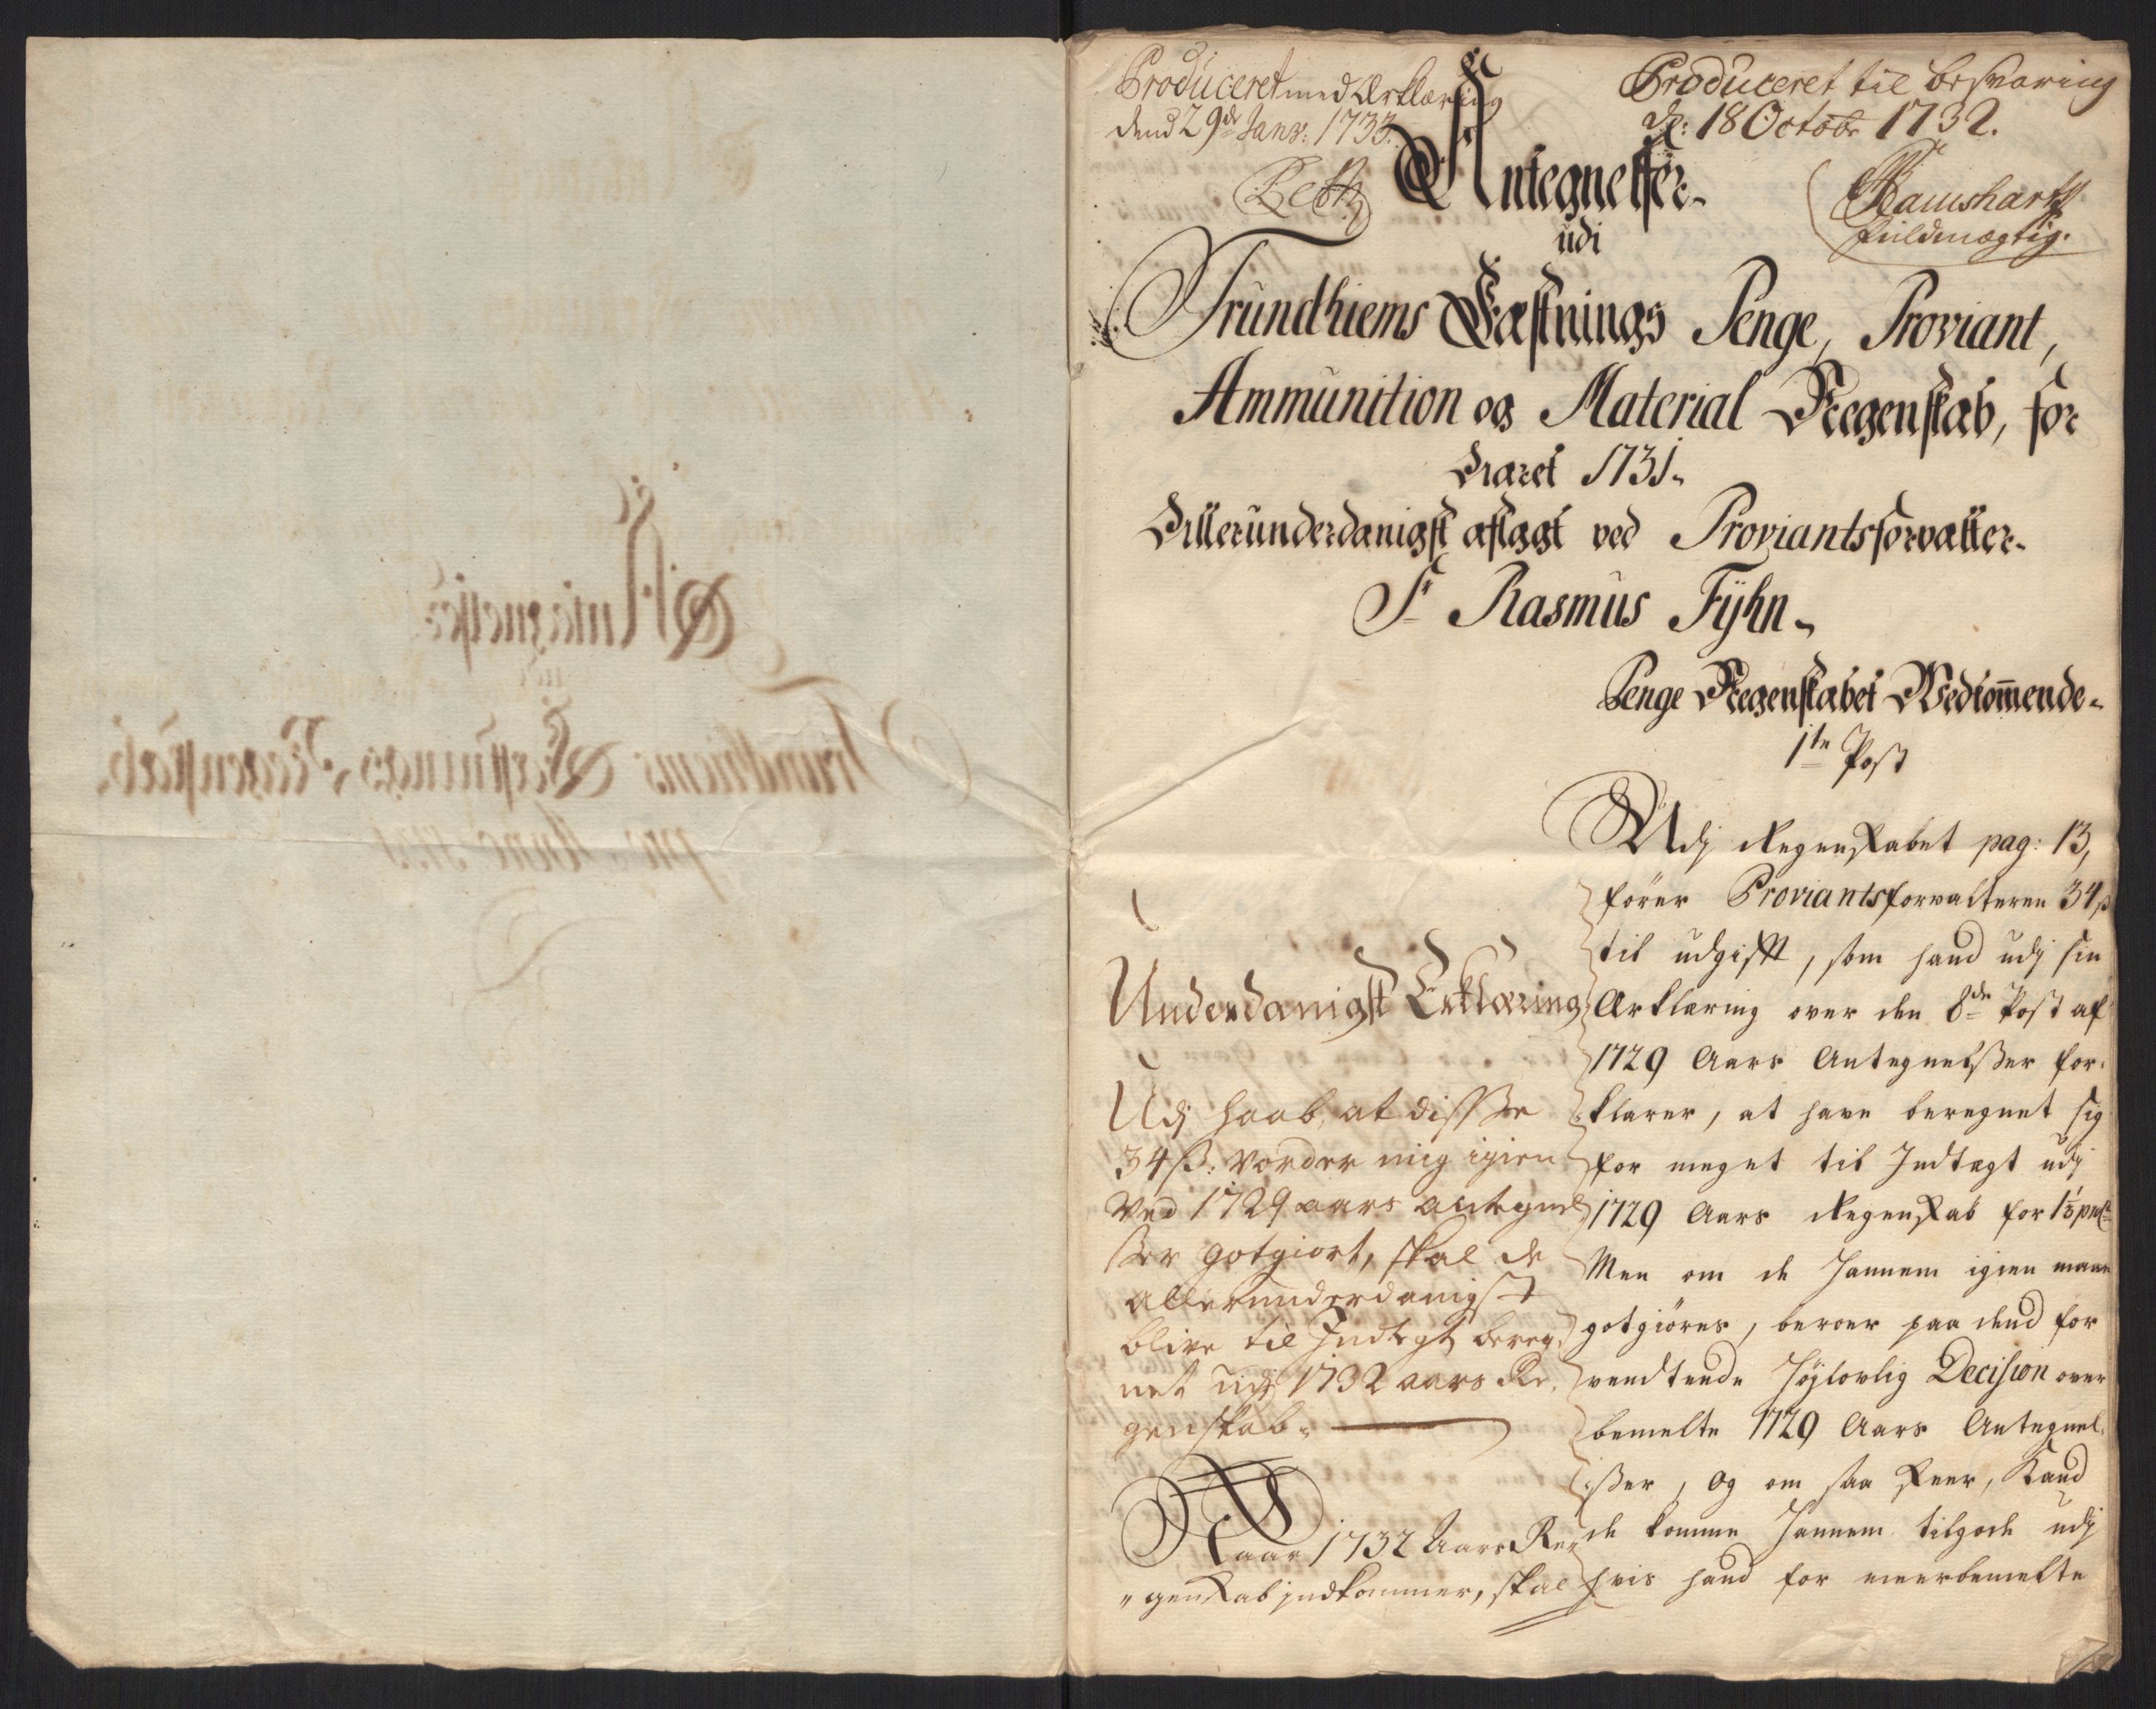 Produceret med Erklæring
dend 29de Janv: 1733.
Produceret til besvaring
d: 18 Octobr 1732.
Ramshart
fuldmægtig.
Antegnelser
udi
Trundhiems Fæstnings Penge, Proviant,
Ammunition og Material Regenskab, for
Aaret 1731.
Allerunderdanigst aflagt ved Proviantsforvalter
Sr Rasmus Fÿhn
Penge Regenskabet Vedkom̄ende
1te Post
Udj Regenskabet pag: 13,
förer Proviantsforvalteren 34 ß
til udgifft, som hand udj sin
Erklæring over den 8de Post af
1729 Aars Antegnelsser for-
klarer, at have beregnet sig
for meget til Indtægt udj
1729 Aars Regenskab for 1⅓ pct
Men om de hannem igien maae
gotgiöres, beroer paa dend for
ventende höÿlovlig Decision over
bemelte 1729 Aars Antegnel-
sser, og om saa skeer, kand
de komme hannem tilgode udj
hvis hand for meerbemelte
Underdanigst Erklæring
Udj haab, at disse
34 ß: vorder mig igien
ved 1729 aars antegnel
ser gotgiort, skal de
allerunderdanigst
blive til Indtegt bereg
net udj 1732 aars Re
genskab.
Naar 1732 Aars Re
genskab indkommer, skal
Antegnelser
udi
Trundhiems Fæstnings Regenskab,
pro Anno 1731